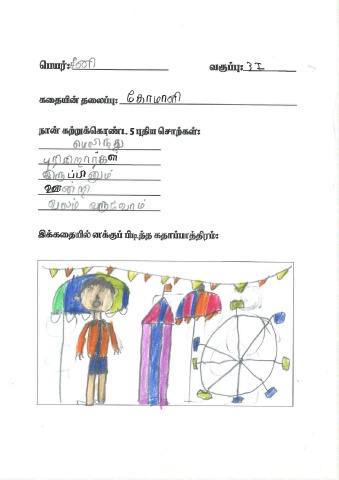 பெயர்: மீனி வகுப்பு: 3I
கதையின் தலைப்பு: கோமாளி
நான் கற்றுக்கொண்ட 5 புதிய சொற்கள்:
மெலிந்து
புரிகிறார்கள்
இருப்பினும்
ஊன்றி
வலம் வருவோம்
இக்கதையில் எனக்குப் பிடித்த கதாப்பாத்திரம்: